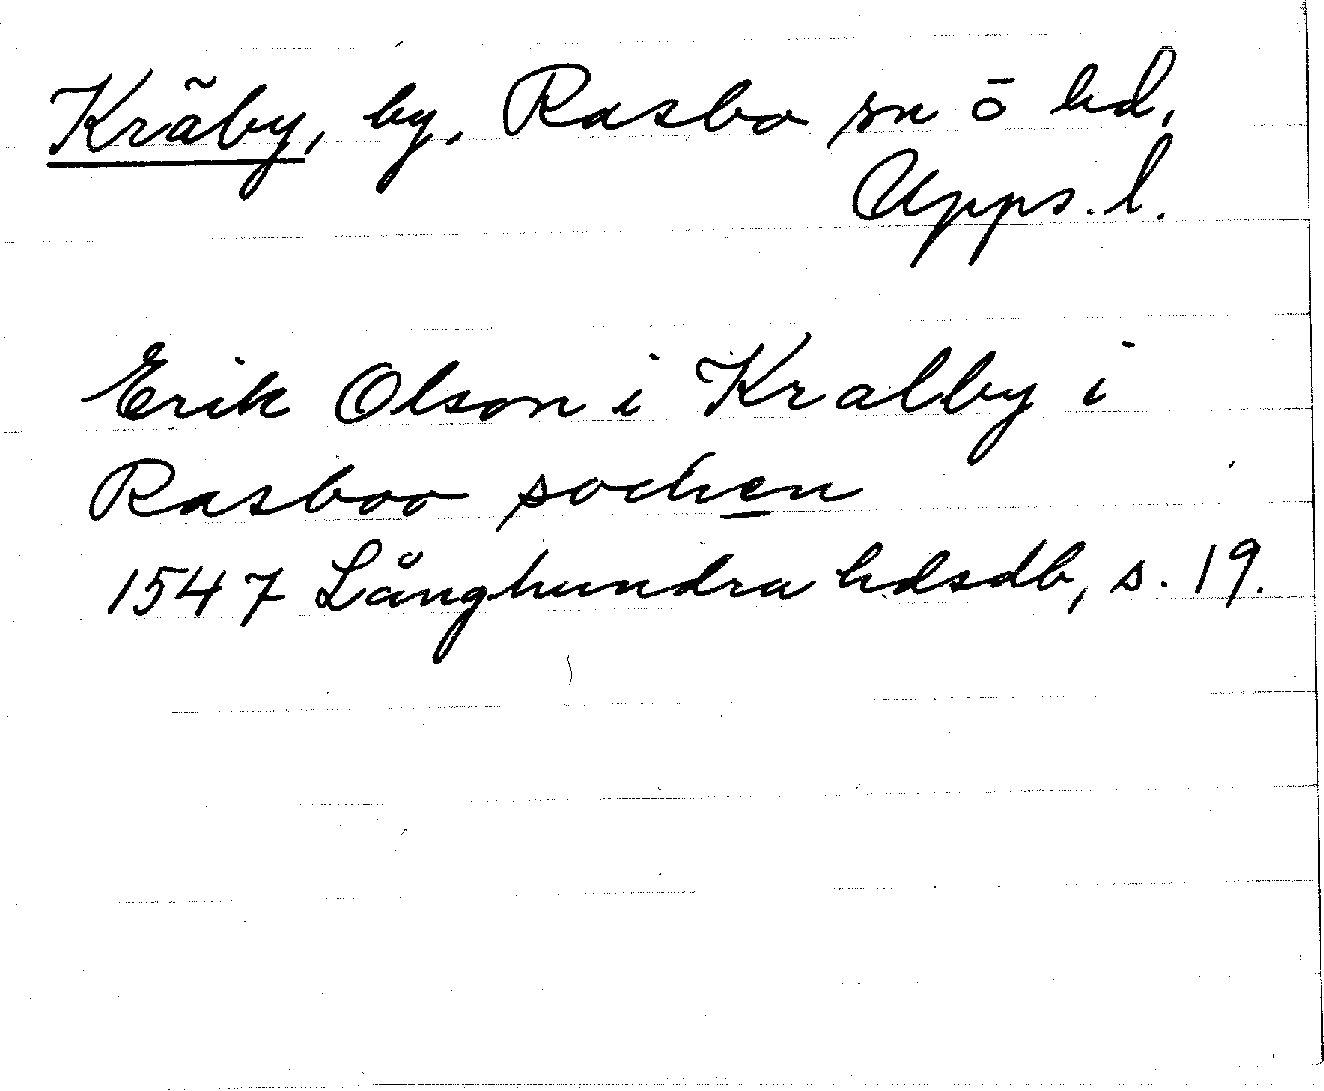 Kräby, by, Rasbo sn o hd,
Upps. l.
Erik Olson i Kralby i
Rasboo socken
1547 Långhundra hdsdb, s. 19.